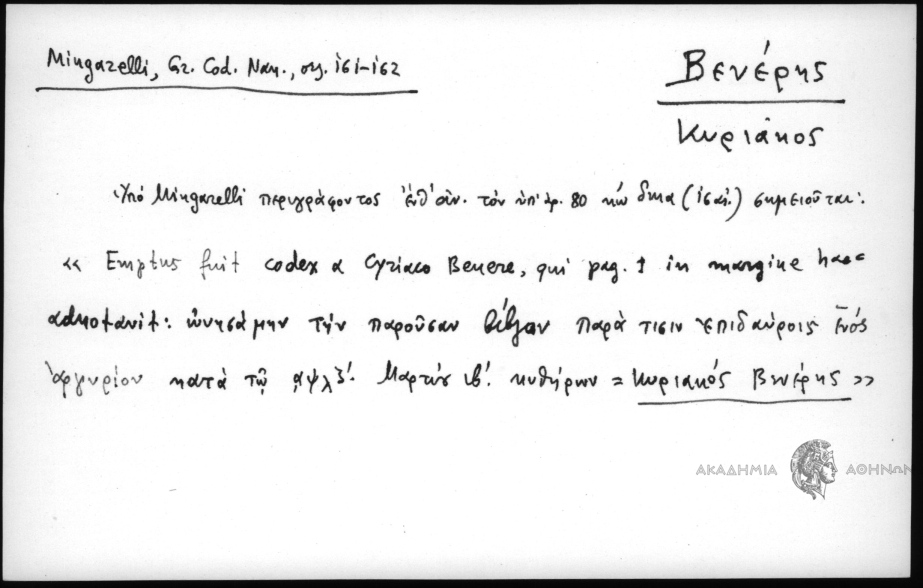 Mingarelli, Gr. Cod. Nan., σσ. 161-162
Βενέρης
Κυριάκος
Ὑπό Mingarelli περιγράφοντος τὸν ὑπ' ἀρ. 80 σημειοῦται:
« Emptus fuit codex a Cyriaco Benere, qui pag. 1 in margine haec
adnotavit: ὠνησάμην τὴν παροῦσαν βίβλον παρὰ τισιν Ἐπιδαύροις ἑνός
ἀργυρίου κατὰ τῷ Μαρτίου ιβ'. κυθήρων = Κυριακός Βενέρης »
ΑΚΑΔΗΜΙΑ ΑΘΗΝΩΝ